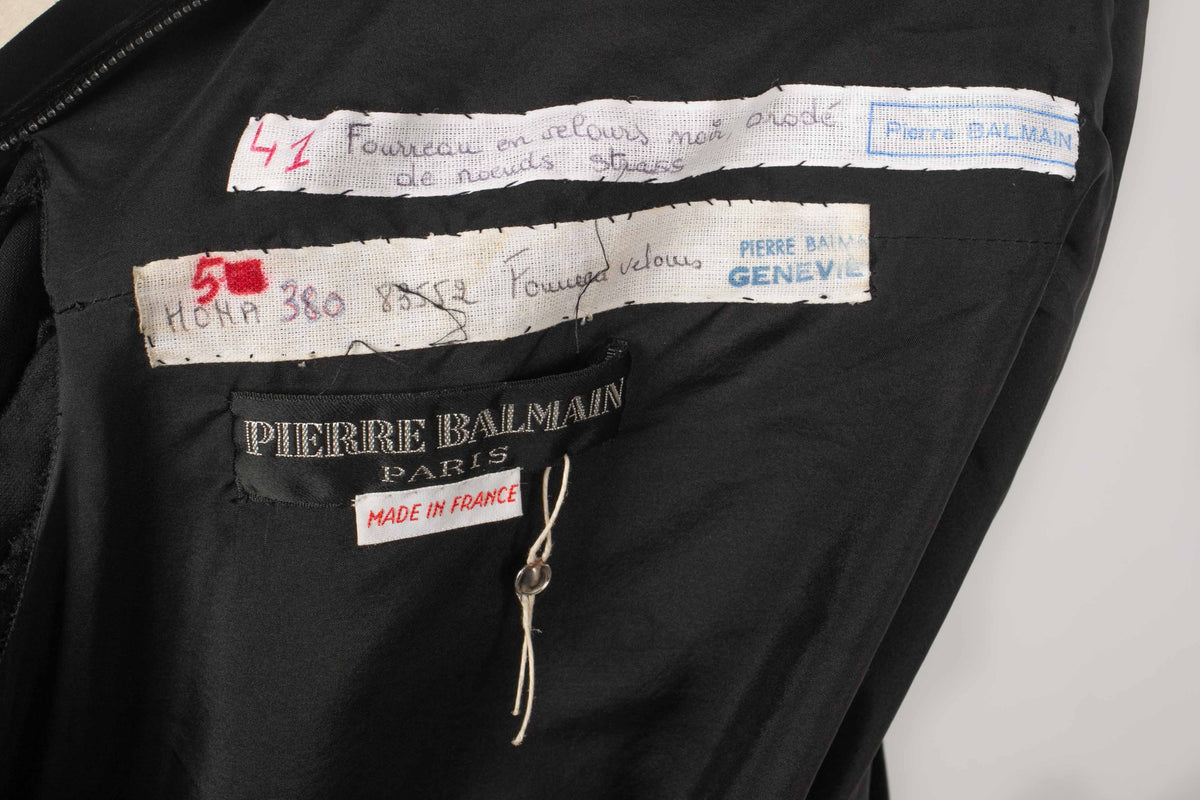 41 Fourreau en velours noir, brodé Pierre BALMAIN
de noeuds strass
5 PIERRE BALMA
380 83552 Fourreau velours GENEVIE
PIERRE BALMAIN
PARIS
MADE IN FRANCE